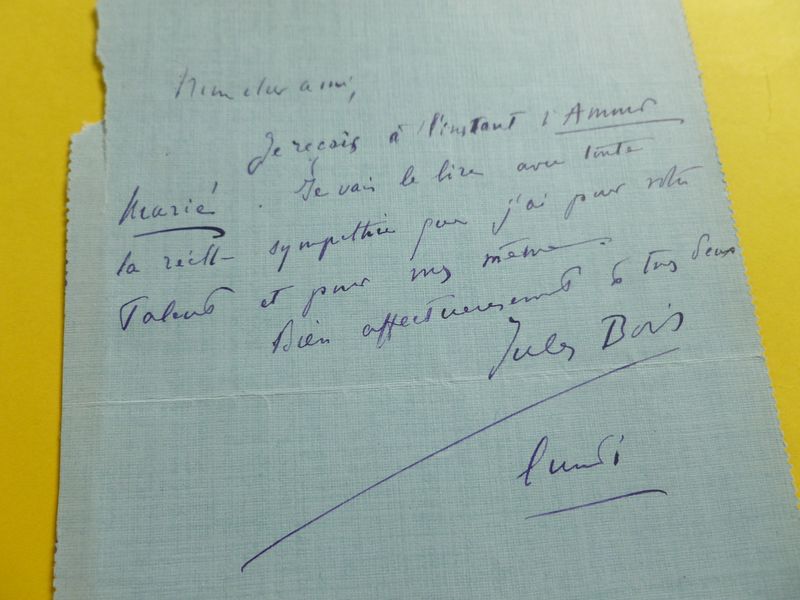 Mon cher ami,
Je reçois à l'instant l'Amour
Marié. Je vais le lire avec toute
la réelle sympathie que j'ai pour votre
Talent et pour vous même.
Bien affectueusement à tous deux
Jules Bois
lundi